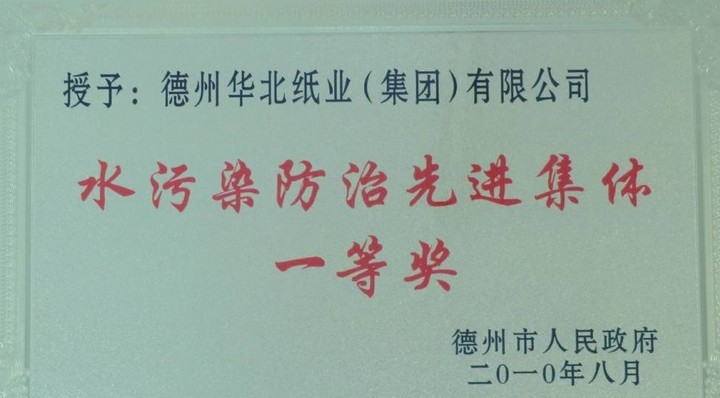 授予：德州华北纸业（集团）有限公司
水污染防治先进集体
一等奖
德州市人民政府
二〇一〇年八月